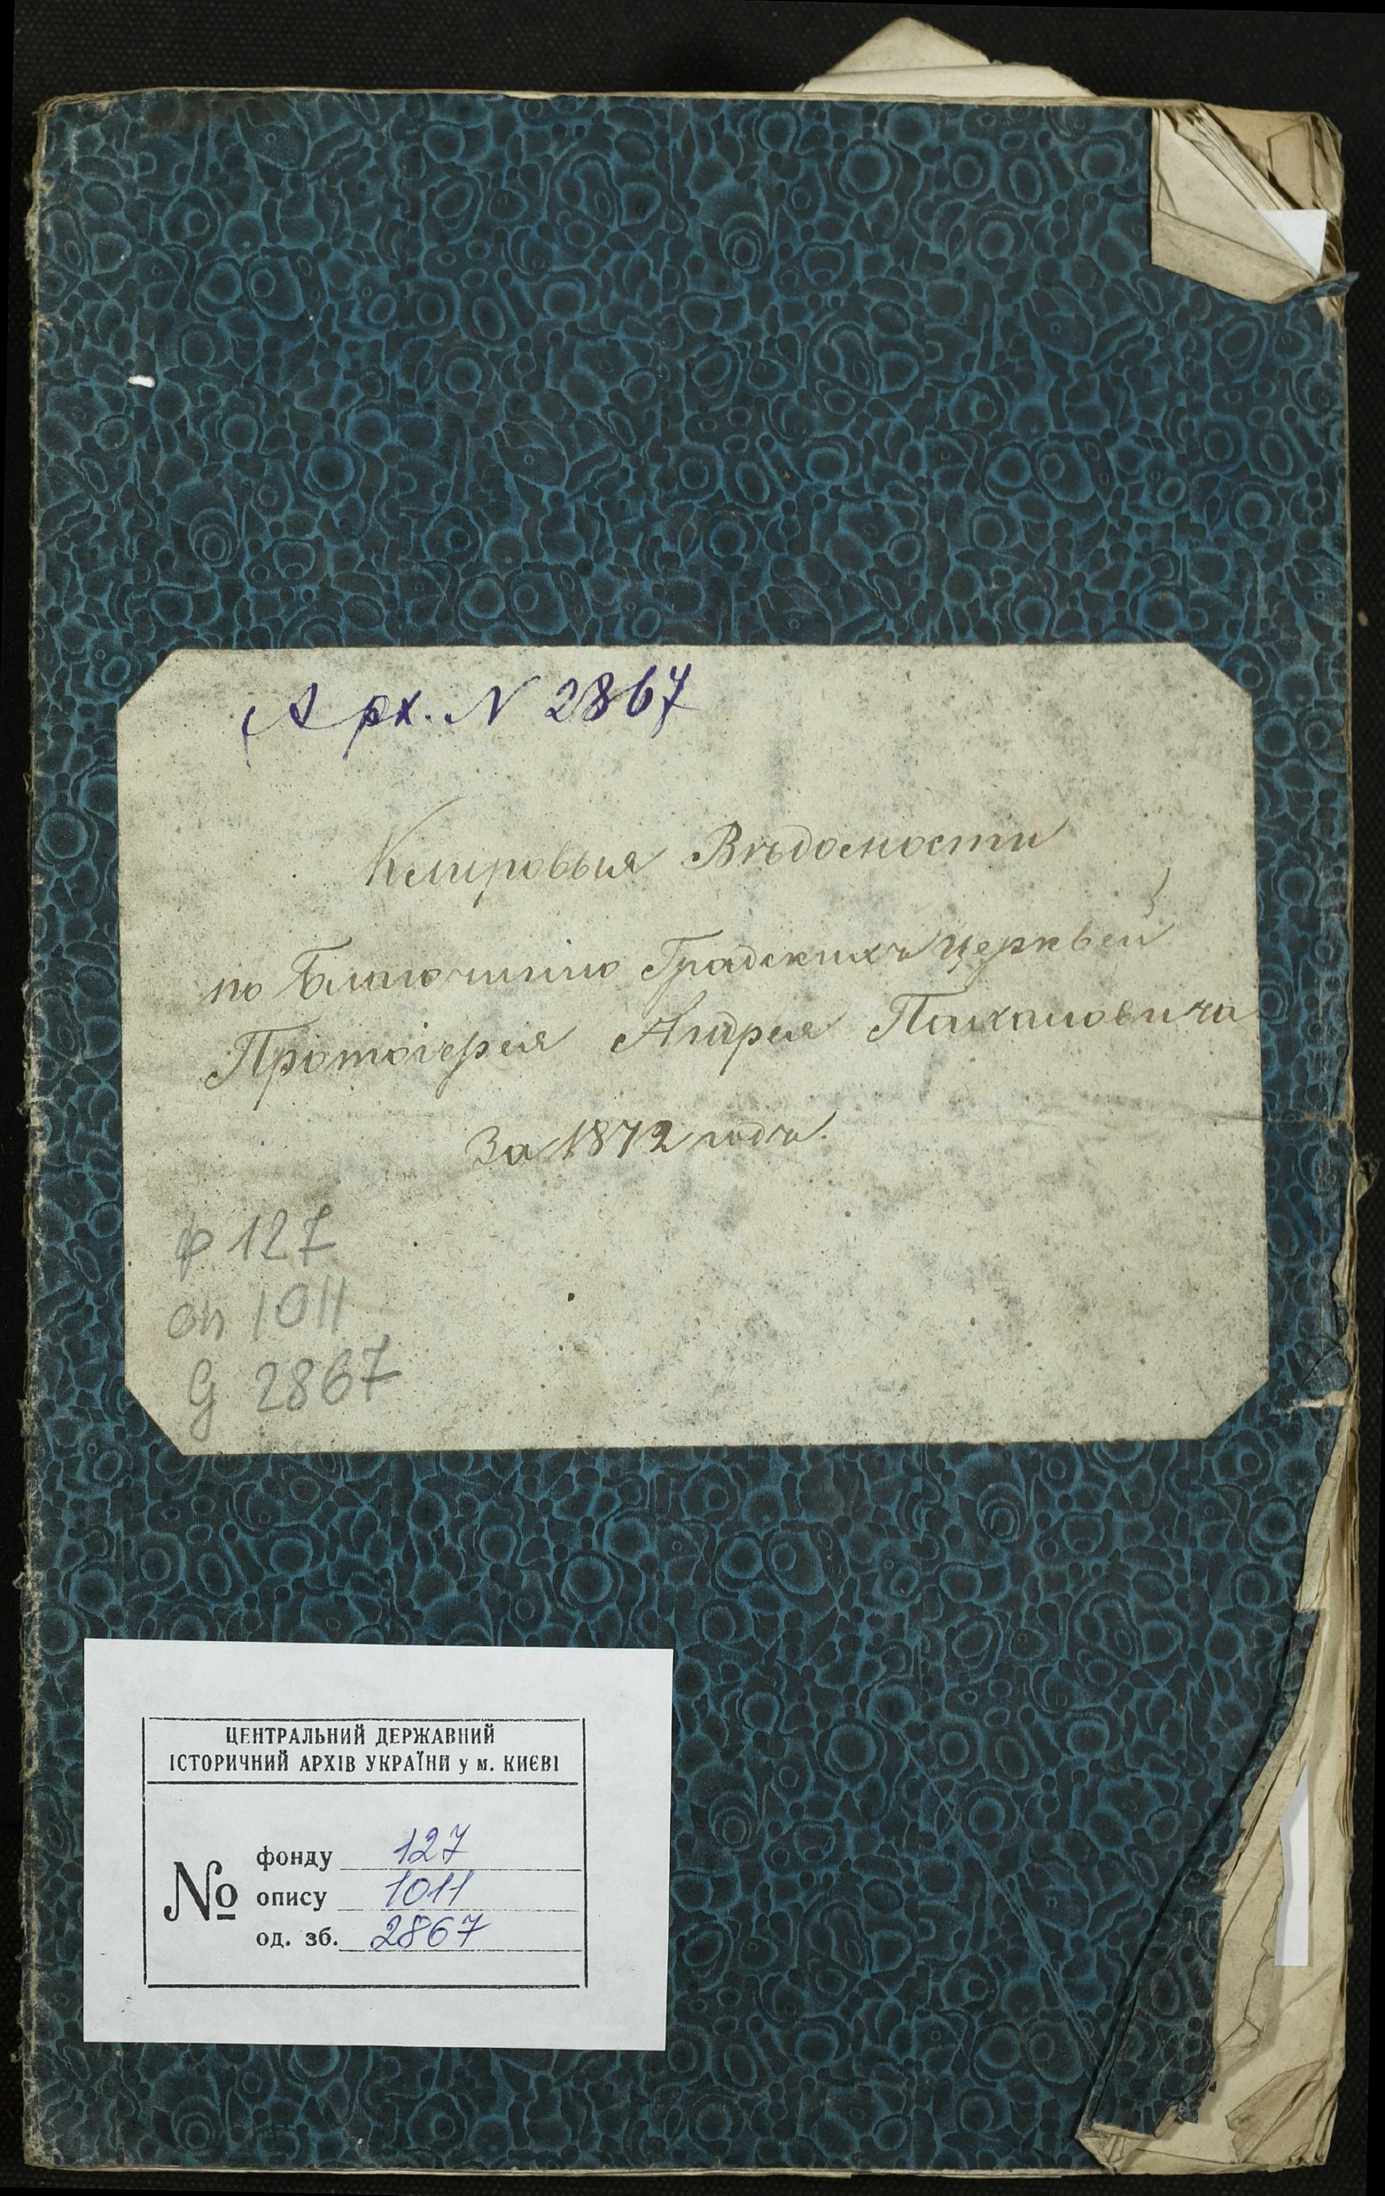 Арх. N 2867
Клировыя Вѣдомости
по Благочинію Градскихъ Церквей
Протоіерея Андрея
За 1872 годъ.
ф 127
оп 1011
д 2867
ЦЕНТРАЛЬНИЙ ДЕРЖАВНИЙ
ІСТОРИЧНИЙ АРХІВ УКРАЇНИ у м. КИЄВІ
№
фонду 127
опису 1011
од. зб. 2867